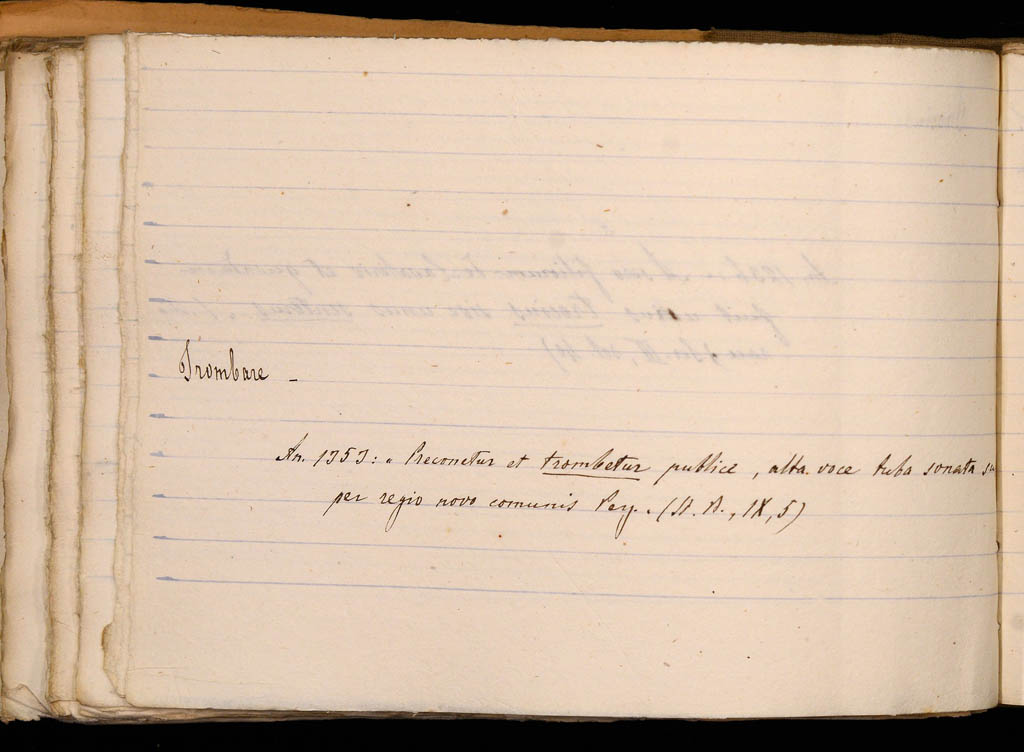 Trombare -
An. 1353: « Preconetur et trombetur publice, alta voce tuba sonata su
per regio novo comunis Per. » (St. B., IX, 5)